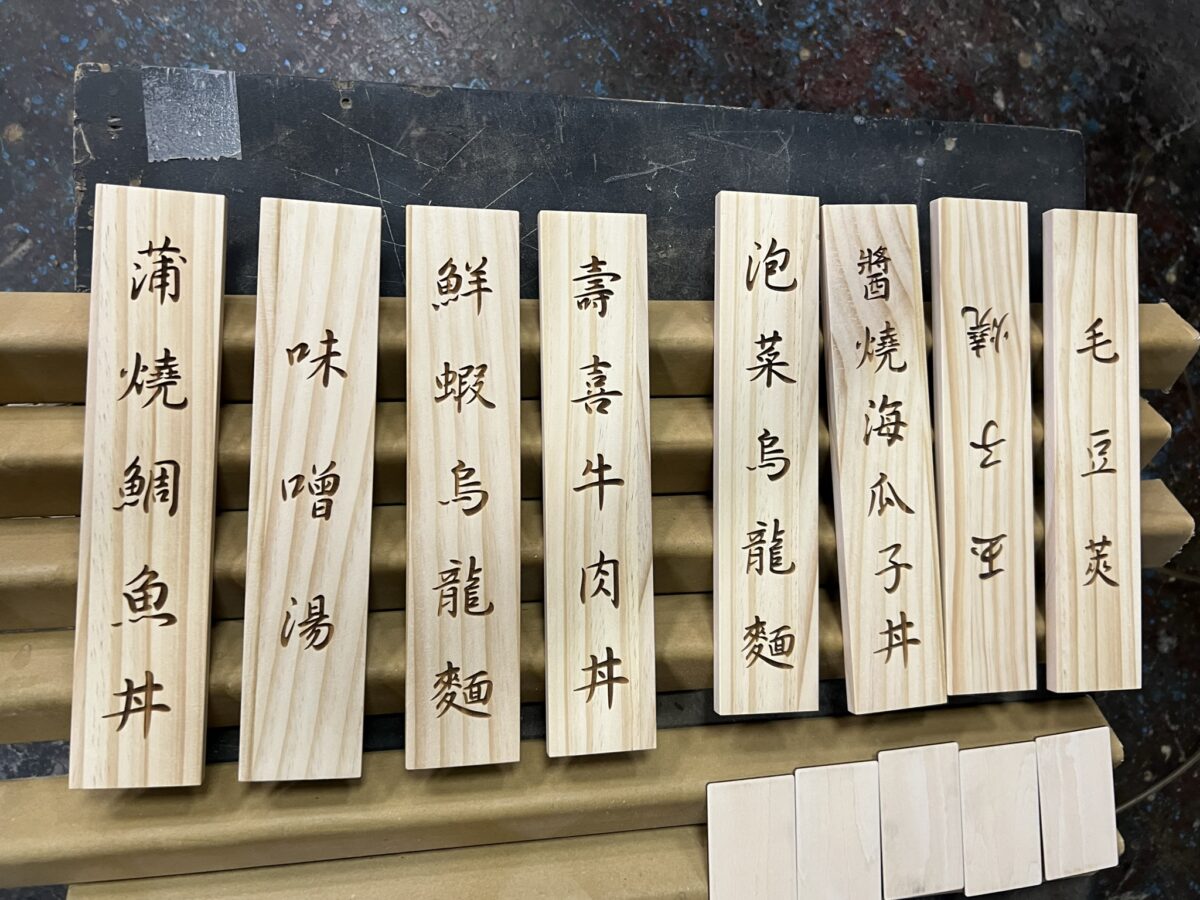 蒲燒鯛魚丼
味噌湯
鮮蝦烏龍麵
壽喜牛肉丼
泡菜烏龍麵
醬燒海瓜子丼
玉子燒
毛豆莢